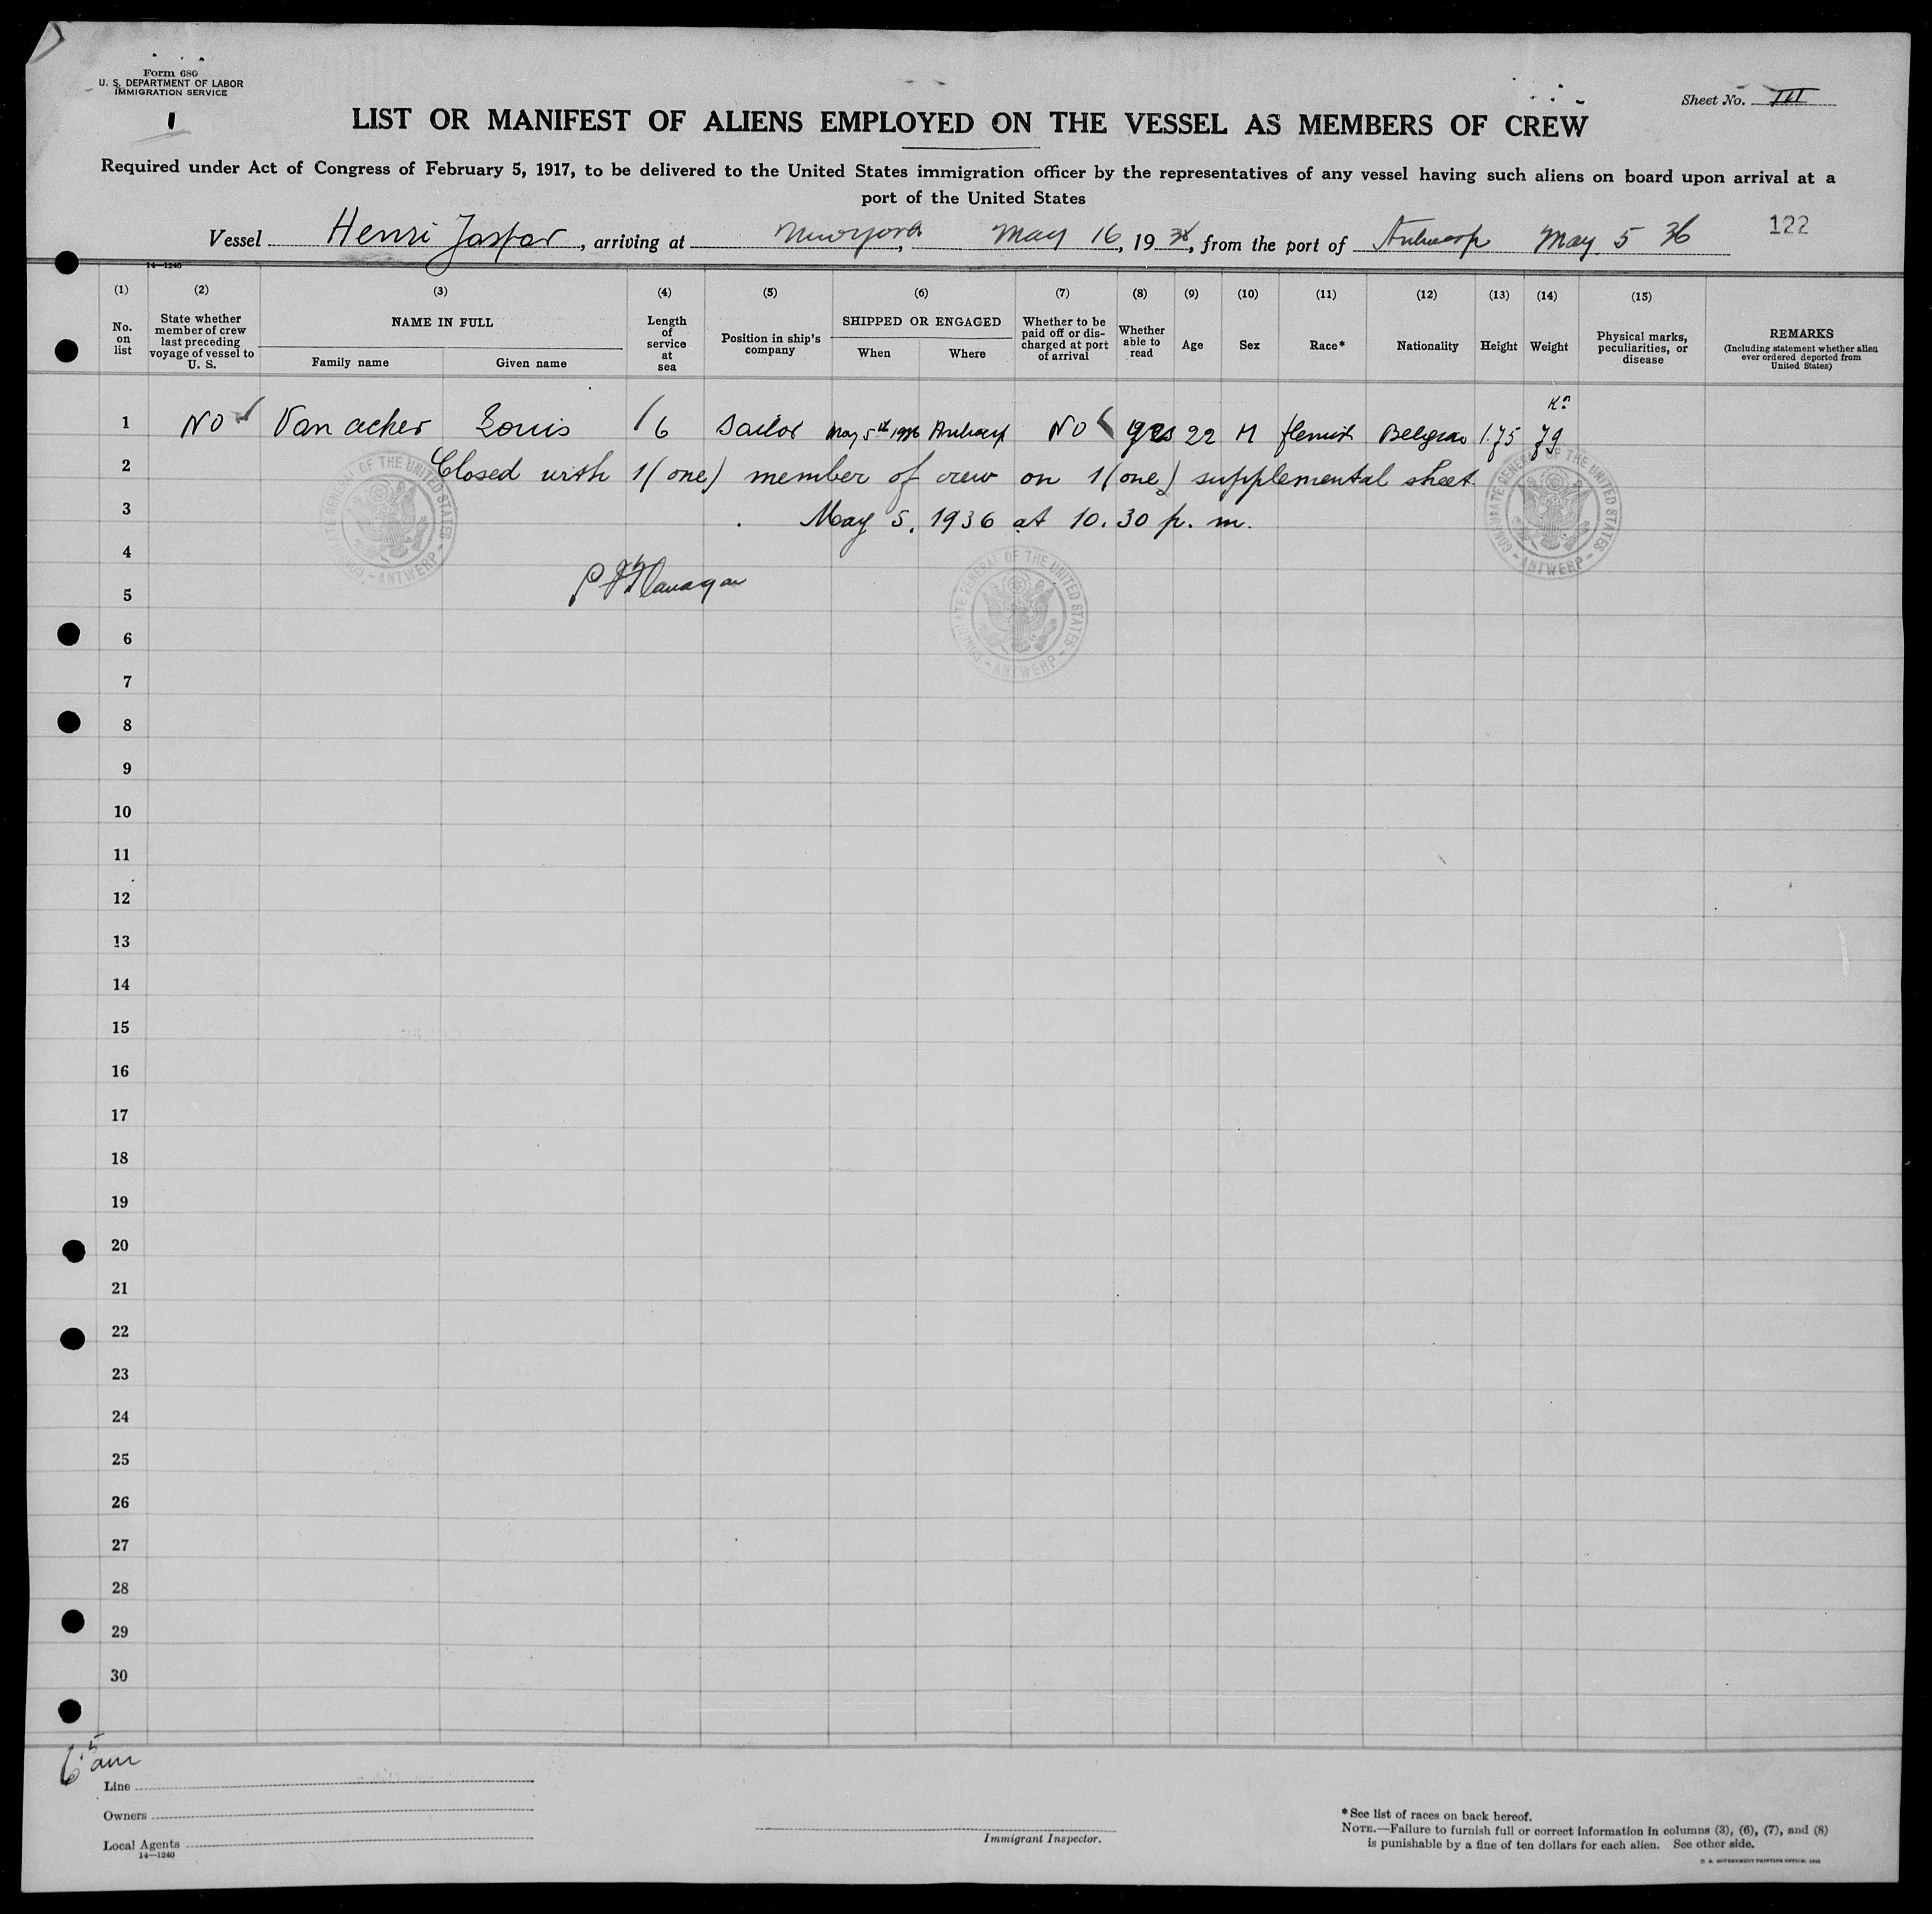 Form 680
U. S. DEPARTMENT OF LABOR
IMMIGRATION SERVICE
1
Sheet No. III
LIST OR MANIFEST OF ALIENS EMPLOYED ON THE VESSEL AS MEMBERS OF CREW
Required under Act of Congress of February 5, 1917, to be delivered to the United States immigration officer by the representatives of any vessel having such aliens on board upon arrival at a
port of the United States
Vessel Henri Jaspar, arriving at New york, May 16, 1936, from the port of Antwerp May 5 36
122
14—1240
(1) (2) (3) (4) (5) (6) (7) (8) (9) (10) (11) (12) (13) (14) (15)
No. on list
State whether member of crew last preceding voyage of vessel to U. S.
NAME IN FULL
Family name Given name
Length of service at sea
Position in ship's company
SHIPPED OR ENGAGED
When Where
Whether to be paid off or discharged at port of arrival
Whether able to read
Age
Sex
Race*
Nationality
Height
Weight
Physical marks, peculiarities, or disease
REMARKS
(Including statement whether alien ever ordered deported from United States)
1 No Van acker Louis 6 Sailor May 5th 1936 Antwerp No yes 22 M flemish Belgian 1.75 79
2 Closed with 1 (one) member of crew on 1 (one) supplemental sheet
3 May 5, 1936 at 10.30 p. m.
CONSULATE GENERAL OF THE UNITED STATES - ANTWERP -
CONSULATE GENERAL OF THE UNITED STATES - ANTWERP -
4
P Flanagan
CONSULATE GENERAL OF THE UNITED STATES - ANTWERP -
5
6
7
8
9
10
11
12
13
14
15
16
17
18
19
20
21
22
23
24
25
26
27
28
29
30
Line
Owners
Local Agents
14—1240
Immigrant Inspector.
*See list of races on back hereof.
NOTE.—Failure to furnish full or correct information in columns (3), (6), (7), and (8)
is punishable by a fine of ten dollars for each alien. See other side.